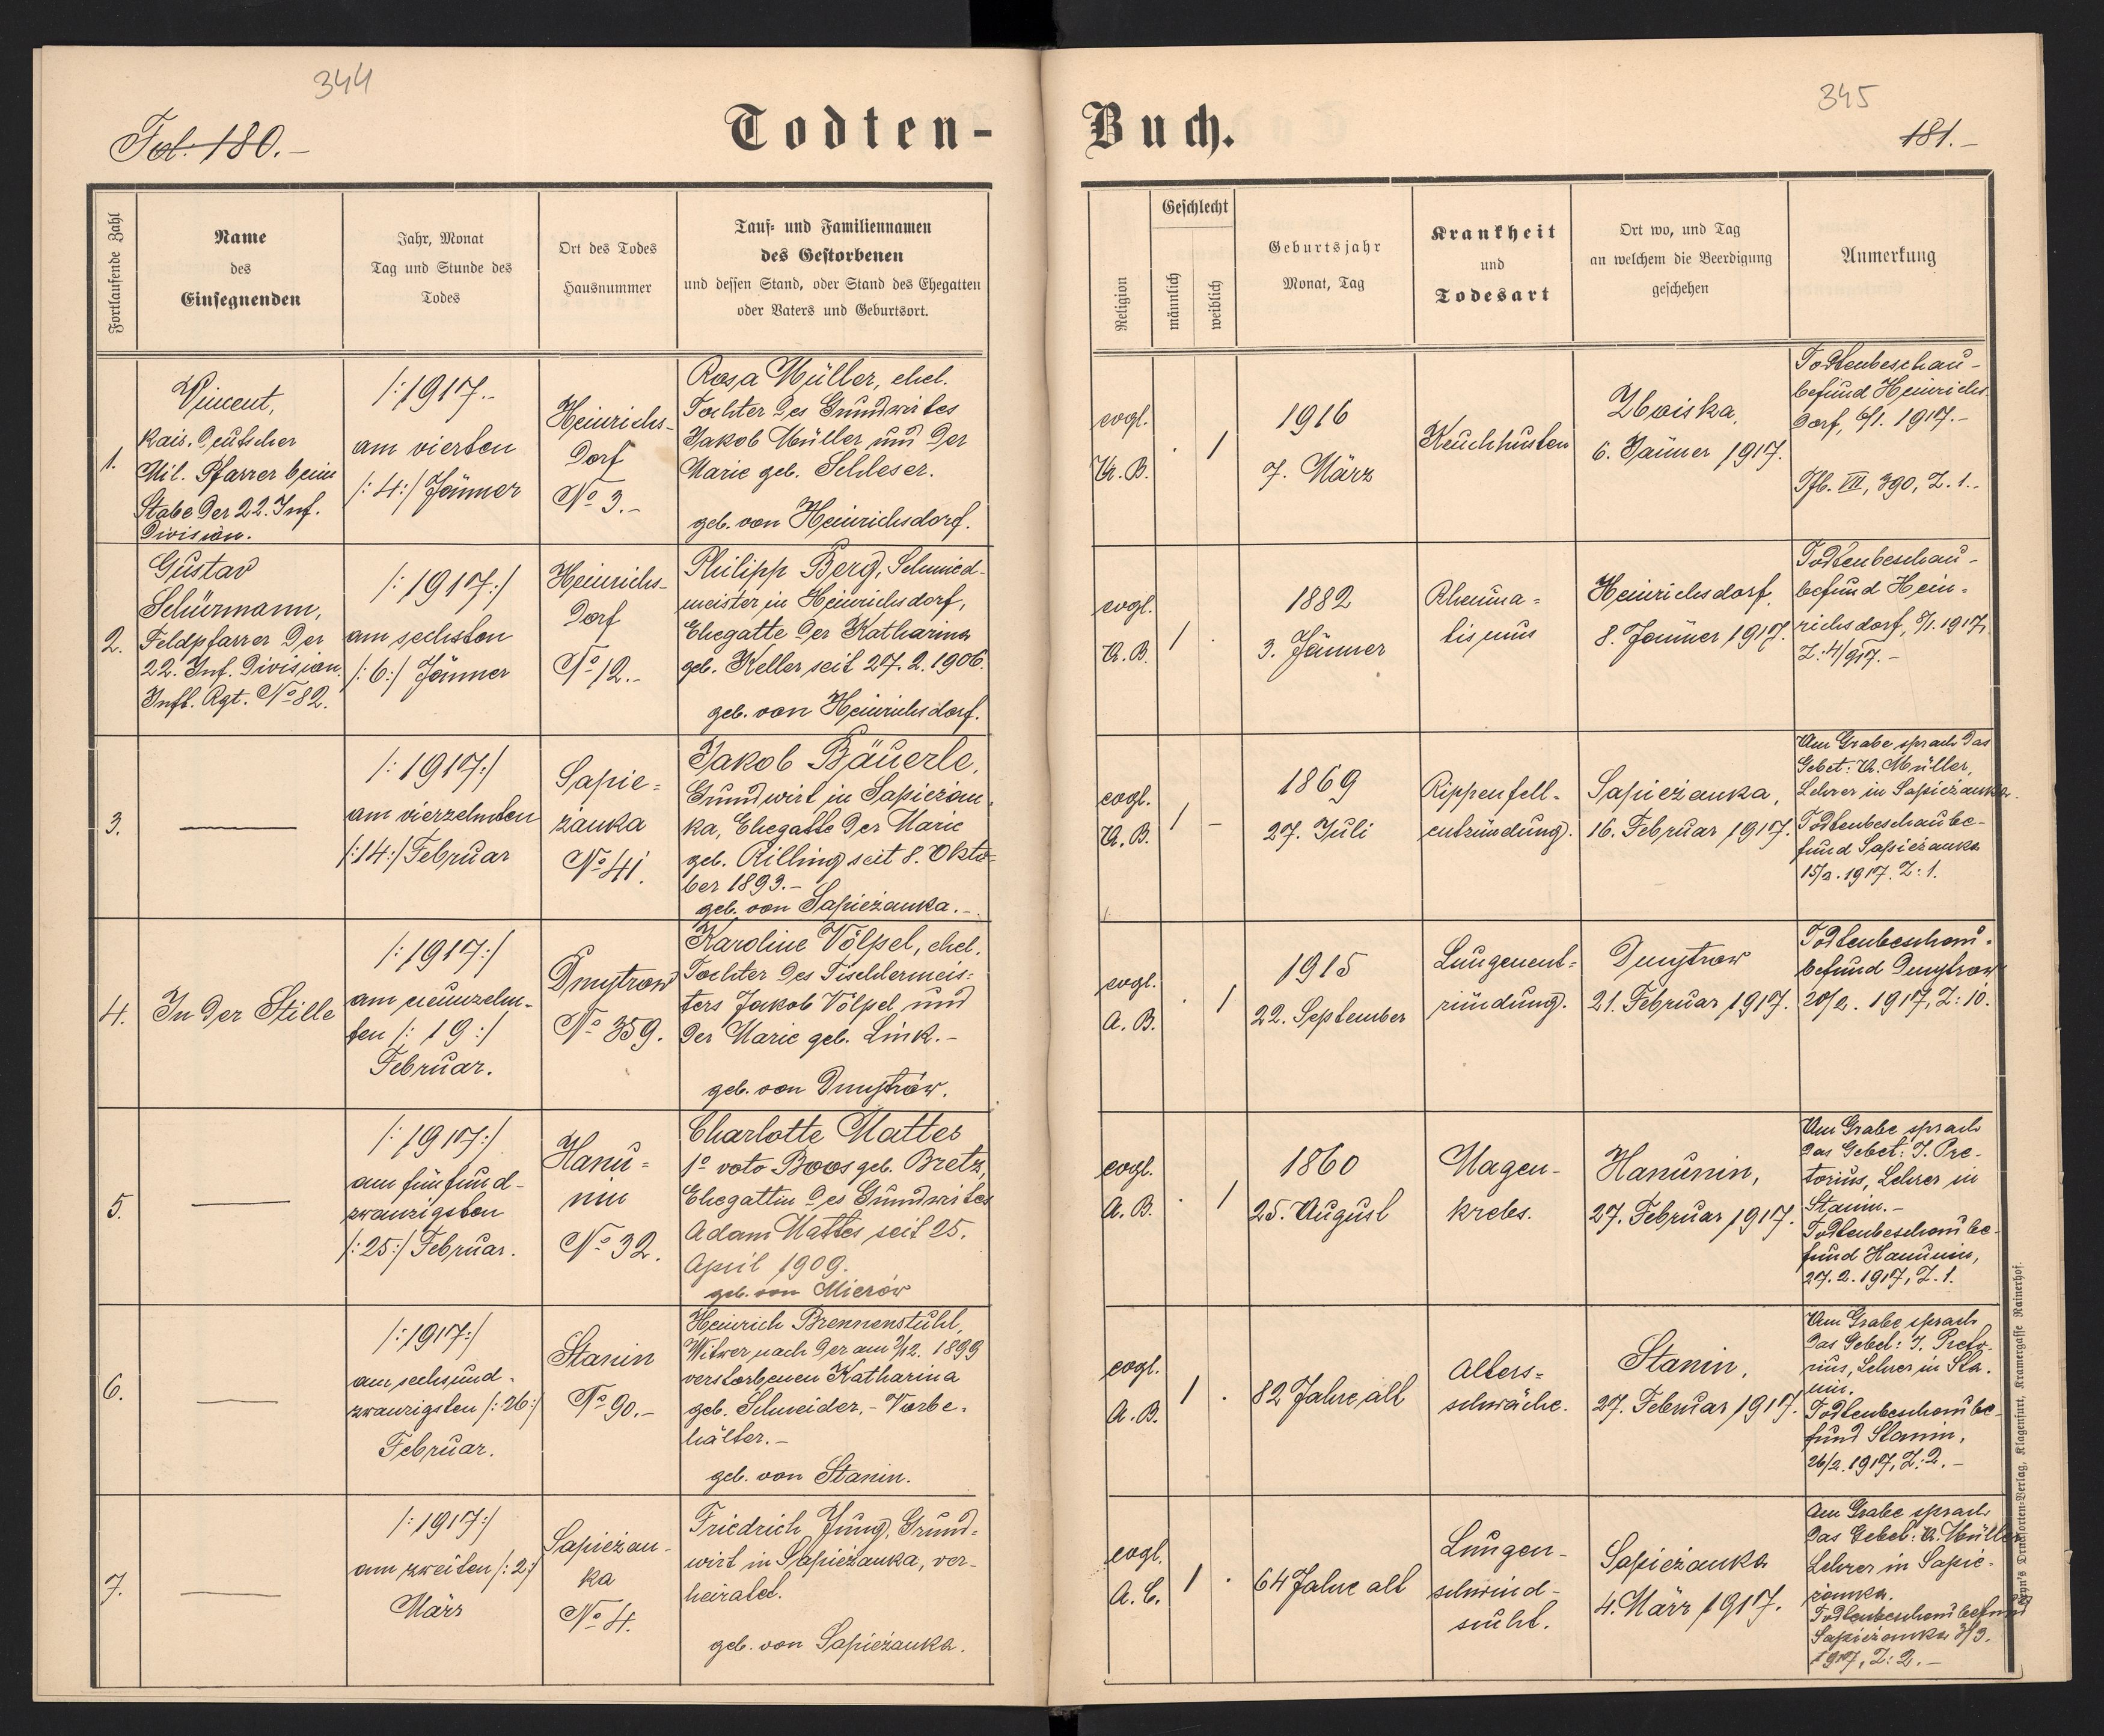 344
Fol. 180.-
Todten-
Fortlaufende Zahl
Name
des
Einsegnenden
Jahr, Monat
Tag und Stunde des
Todes
Ort des Todes
Hausnummer
Tauf- und Familiennamen
des Gestorbenen
und dessen Stand, oder Stand des Ehegatten
oder Vaters und Geburtsort.
1.
Vincent,
Kais. Deutscher
Mil. Pfarrer beim
Stabe der 22. Inf.
Division.
/:1917.-
am vierten
/:4:/ Jänner
Heinrichs-
dorf
No 3.-
Rosa Müller, ehel.
Tochter des Grundwirtes
Jakob Müller und der
Marie geb. Schleser.
geb. von Heinrichsdorf.
2.
Gustav
Schürmann,
Feldpfarrer der
22. Inf. Division.
Inft. Rgt. No 82.
/:1917:/
am sechsten
/:6:/ Jänner
Heinrichs-
dorf
No 12.-
Philipp Berg, Schmied-
meister in Heinrichsdorf,
Ehegatte der Katharina
geb. Keller seit 27.2.1906.
geb. von Heinrichsdorf.
3.
/:1917:/
am vierzehnten
/:14:/ Februar
Sapie=
żanka
No 41.
Jakob Bäuerle,
Grundwirt in Sapieżan-
ka, Ehegatte der Marie
geb. Rilling seit 8. Okto=
ber 1893.-
geb. von Sapieżanka.-
4.
In der Stille
/:1917:/
am neunzehn-
ten /:19:/
Februar.
Dmytrow
No 359.
Karoline Völpel, ehel.
Tochter des Tischlermeis=
ters Jakob Völpel und
der Marie geb. Link.-
geb. von Dmytrów.
5.
/:1917:/
am fünfund-
zwanzigsten
/:25:/ Februar.
Hanu=
nin
No 32.
Charlotte Mattes
1o voto Boos geb. Bretz,
Ehegattin des Grundwirtes
Adam Mattes seit 25.
April 1909.
geb. von Mierów
6.
/:1917:/
am sechsund-
zwanzigsten /:26:/
Februar.
Stanin
No 90.-
Heinrich Brennenstuhl,
Witwer nach der am 2/12. 1899
verstorbenen Katharina
geb. Schneider,- Vorbe-
hälter.-
geb. von Stanin.
7.
/:1917:/
am zweiten /:2:/
März
Sapieżan-
ka
No 4.
Friedrich Jung, Grund=
wirt in Sapieżanka, ver-
heiratet.
geb. von Sapieżanka.
345
181.-
Buch.
Religion
Geschlecht
männlich
weiblich
Geburtsjahr
Monat, Tag
Krankheit
und
Todesart
Ort wo, und Tag
an welchem die Beerdigung
geschehen
Anmerkung
evgl.
A.B.
· 1
1916
7. März
Keuchhusten
Zboiska,
6. Jänner 1917.
Todtenbeschau-
befund Heinrichs-
dorf, 6/1. 1917.-
Tfb. VII, 390, Z. 1.-
evgl.
A.B.
1 ·
1882
3. Jänner
Rheuma=
tismus
Heinrichsdorf.
8. Jänner 1917.
Todtenbeschau-
befund Hein-
richsdorf, 7/1. 1917,
Z: 4/917.-
evgl.
A.B.
1 -
1869
27. Juli
Rippenfell-
entzündung.
Sapieżanka,
16. Februar 1917.
Am Grabe sprach das
Gebet: A. Müller,
Lehrer in Sapieżanka.
Todtenbeschaube-
fund Sapieżanka
15/2. 1917. Z: 1.
evgl.
A.B.
· 1
1915
22. September
Lungenent=
zündung.
Dmytrow
21. Februar 1917.
Todtenbeschau-
befund Dmytrow
20/2. 1917, Z: 10.
evgl.
A.B.
· 1
1860
25. August
Magen-
krebs.
Hanunin,
27. Februar 1917.
Am Grabe sprach
das Gebet: J. Pre-
torius, Lehrer in
Stanin.-
Todtenbeschaube-
fund Hanunin,
27.2.1917, Z. 1.
evgl.
A.B.
1 ·
82 Jahre alt
Alters=
schwäche.
Stanin,
27. Februar 1917.
Am Grabe sprach
das Gebet: J. Preto-
rius, Lehrer in Sta-
nin.
Todtenbeschaube-
fund Stanin,
26/2. 1917, Z: 2.-
evgl.
A.C.
1 ·
64 Jahre alt
Lungen-
schwind-
sucht.
Sapieżanka
4. März 1917.
Am Grabe sprach
das Gebet: A. Müller
Lehrer in Sapie-
żanka.
Todtenbeschaubefund
Sapieżanka 3/3.
1917, Z: 2.-
Druksorten-Verlag, Klagenfurt, Kramergasse Rainerhof.